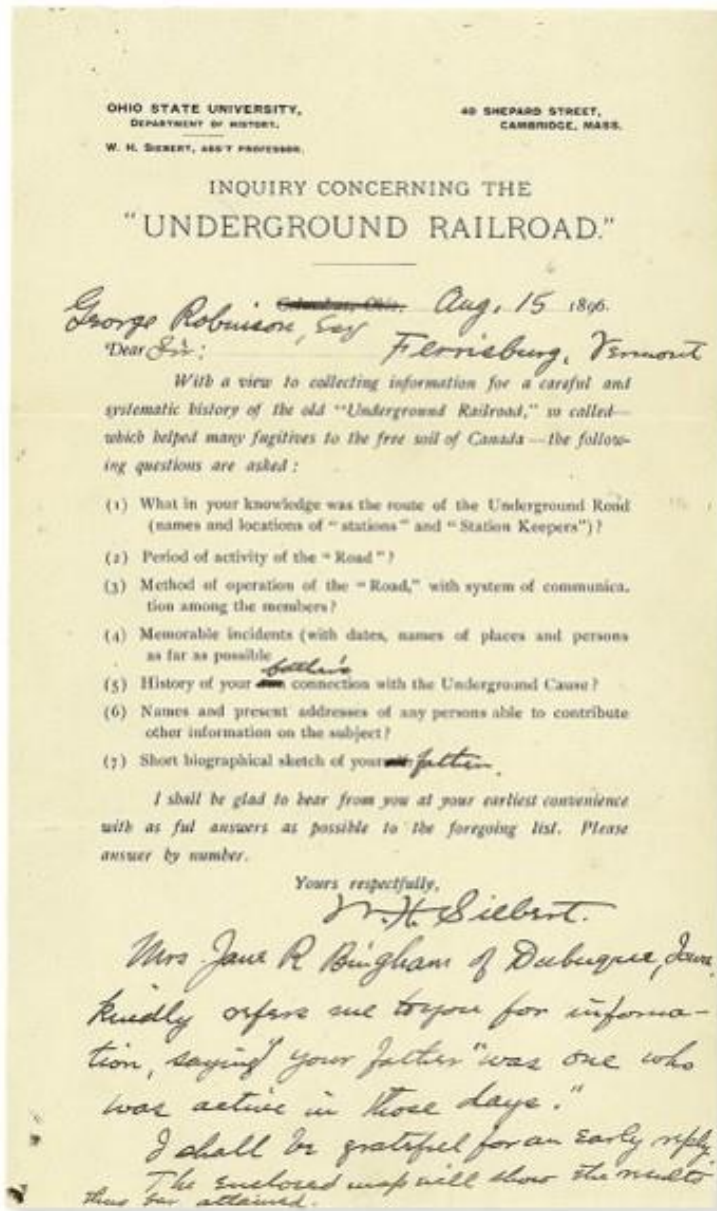 OHIO STATE UNIVERSITY,
DEPARTMENT OF HISTORY.
W. H. SIEBERT, ASS'T PROFESSOR.
40 SHEPARD STREET,
CAMBRIDGE, MASS.
INQUIRY CONCERNING THE
"UNDERGROUND RAILROAD."
Columbus, Ohio. Aug, 15 1896.
George Robinson, Esq
Ferrisburg, Vermont
Dear Sir:
With a view to collecting information for a careful and
systematic history of the old "Underground Railroad," so called—
which helped many fugitives to the free soil of Canada—the follow-
ing questions are asked:
(1) What in your knowledge was the route of the Underground Road
(names and locations of "stations" and "Station Keepers")?
(2) Period of activity of the "Road"?
(3) Method of operation of the "Road," with system of communica.
tion among the members?
(4) Memorable incidents (with dates, names of places and persons
as far as possible
(5) History of your father's connection with the Underground Cause?
(6) Names and present addresses of any persons able to contribute
other information on the subject?
(7) Short biographical sketch of your father.
I shall be glad to hear from you at your earliest convenience
with as ful answers as possible to the foregoing list. Please
answer by number.
Yours respectfully,
W. H. Siebert.
Mrs Jane R Bingham of Dubuque, Iowa,
kindly refers me to you for informa-
tion, saying your father "was one who
was active in those days."
I shall be grateful for an early reply.
The enclosed map will show the results
thus far attained.